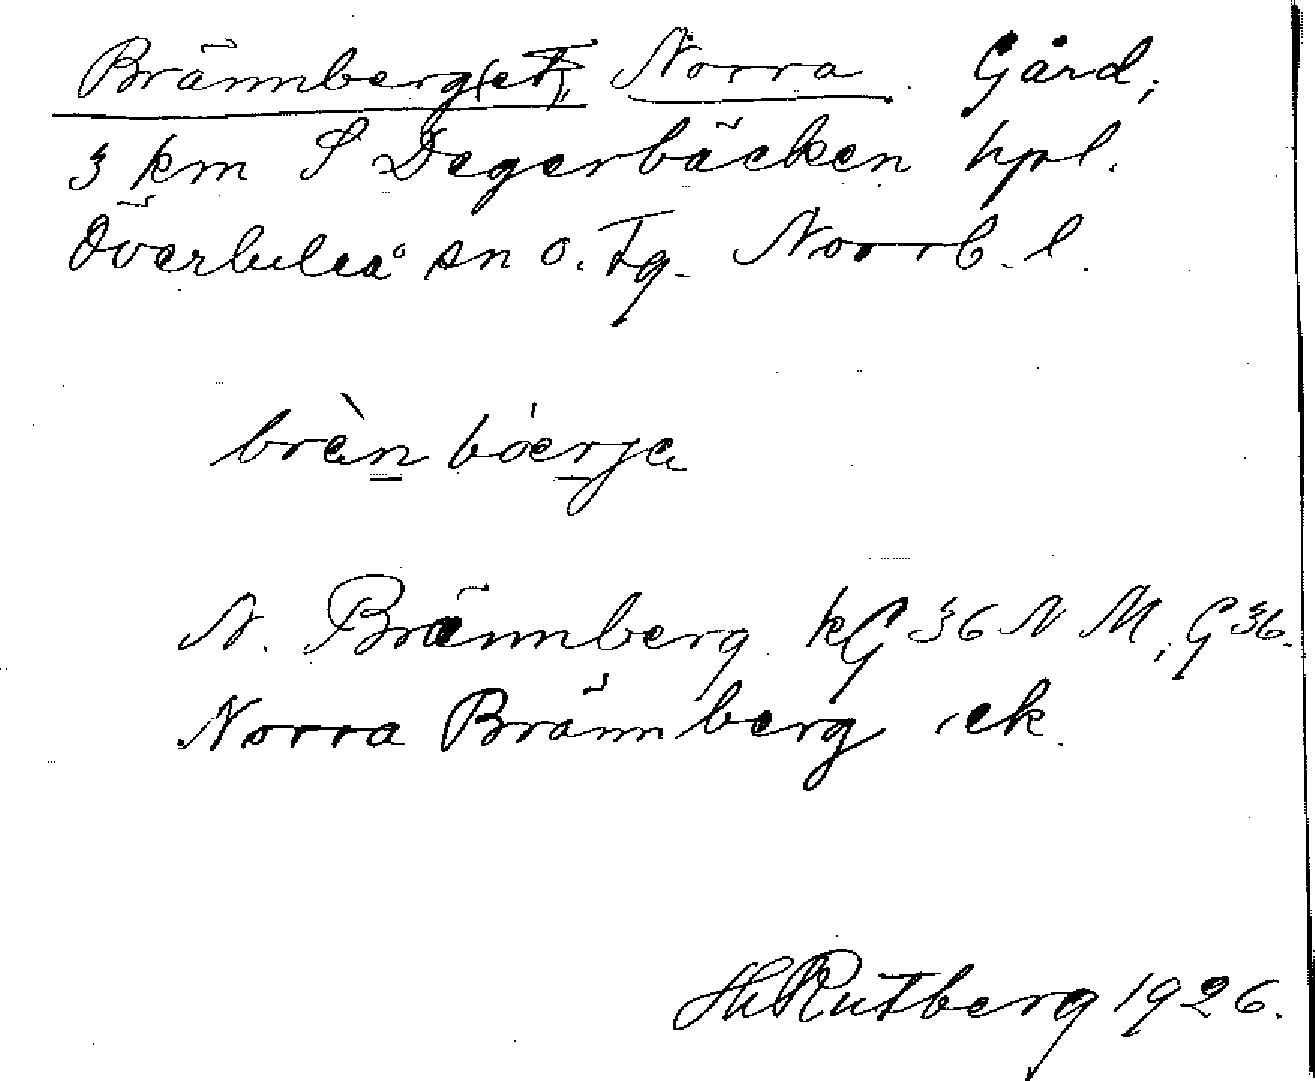 Brännberg(et), Norra Gård,
3 km S Degerbäcken hpl.
Överluleå sn o. Tg. Norrb. l.
brà̱n bó̱erja
N. Brännberg kG 36 N M, G 36.
Norra Brännberg ek.
Hl Rutberg 1926.